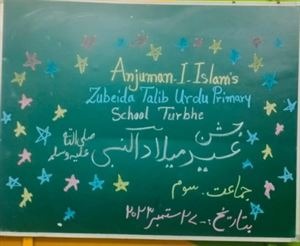 Anjuman-I-Islam's
Zubeida Talib Urdu Primary
School Turbhe
جشن
عید میلاد النبی صلی اللہ علیہ وسلم
جماعت۔ سوم
بتاریخ:۔ ۲۷ ستمبر ۲۰۲۳